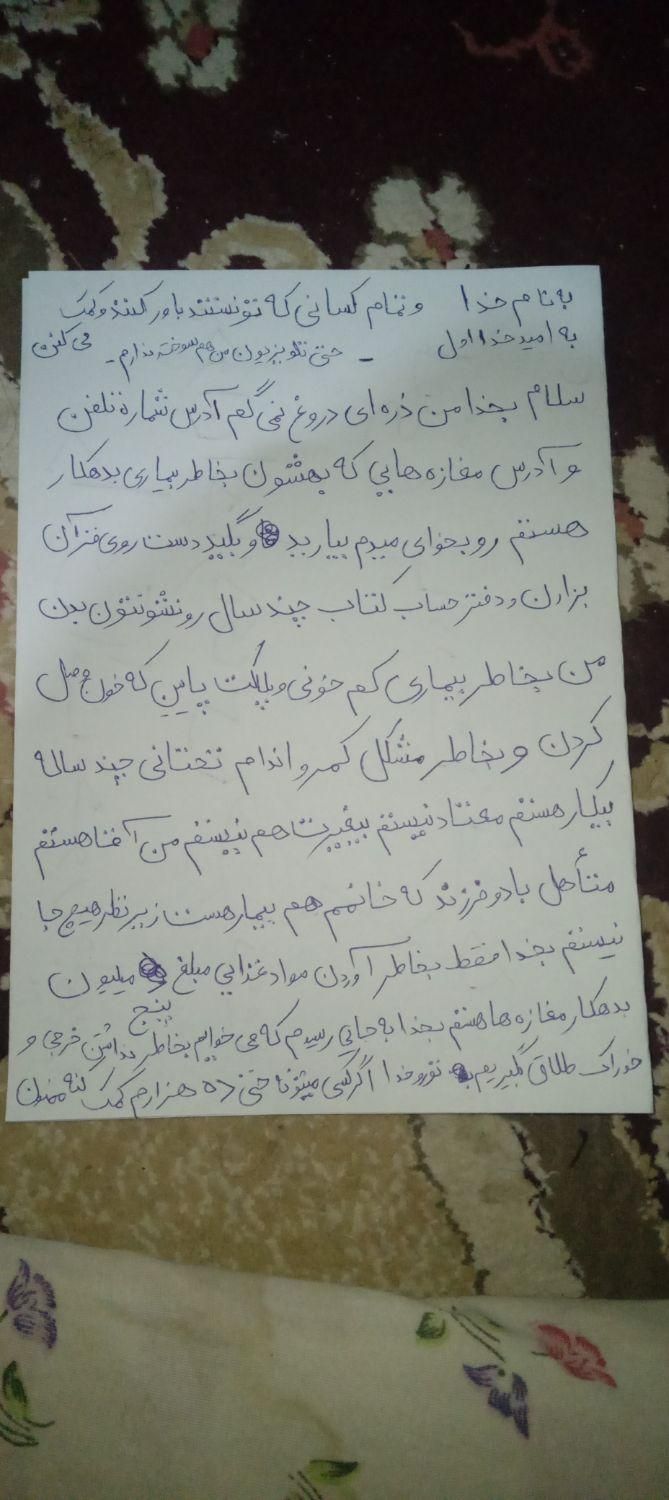 به نام خدا و تمام کسانی که تونستند باور کنند و کمک
به امید خدا اول – حتی تلویزیون من هم سوخته ندارم – می کنن
سلام بخدا من ذره ای دروغ نمی گم آدرس شماره تلفن
و آدرس مغازه هایی که بهشون بخاطر بیماری بدهکار
هستم رو بخوای میدم بیارید و بگید دست روی قرآن
بزارن و دفتر حساب کتاب چند سال رو نشونتون بدن
من بخاطر بیماری کم خونی و پلاکت پایین که خون وصل
کردن و بخاطر مشکل کمر و اندام تحتانی چند ساله
بیکار هستم معتاد نیستم بیغیرت هم نیستم من آقا هستم
متأهل با دو فرزند که خانمم هم بیمار هست زیر نظر هیچ جا
نیستم بخدا فقط بخاطر آوردن مواد غذایی مبلغ میلیون
پنج
بدهکار مغازه ها هستم بخدا به جایی رسیدم که می خوایم بخاطر نداشتن خرجی و
خوراک طلاق بگیریم تورو خدا اگر کسی میتونه حتی ده هزارم کمک کنه ممنون